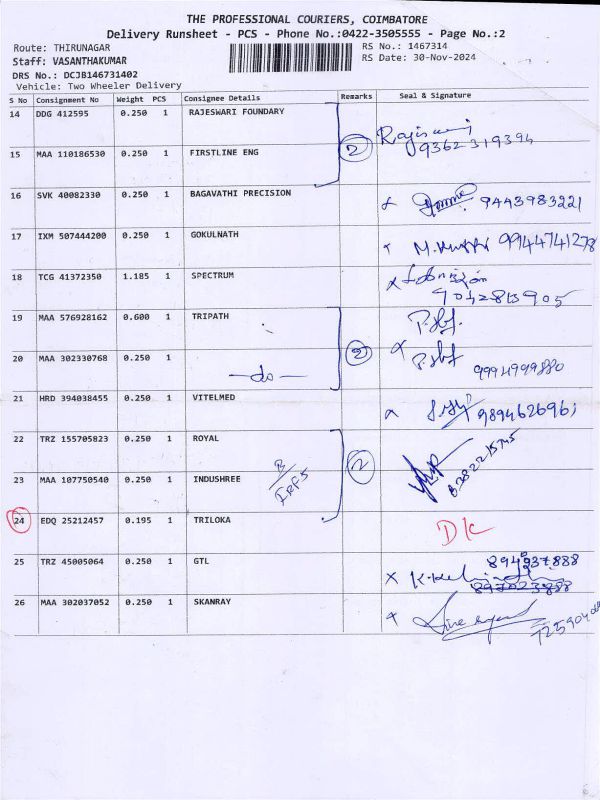 THE PROFESSIONAL COURIERS, COIMBATORE
Delivery Runsheet - PCS - Phone No.:0422-3505555 - Page No.:2
Route: THIRUNAGAR
RS No.: 1467314
Staff: VASANTHAKUMAR
RS Date: 30-Nov-2024
DRS No.: DCJB146731402
Vehicle: Two Wheeler Delivery
S No Consignment No Weight PCS Consignee Details Remarks Seal & Signature
14 DDG 412595 0.250 1 RAJESWARI FOUNDARY
15 MAA 110186530 0.250 1 FIRSTLINE ENG 2 9362319394
16 SVK 40082330 0.250 1 BAGAVATHI PRECISION 9443983221
17 IXM 507444200 0.250 1 GOKULNATH 9944741278
18 TCG 41372350 1.185 1 SPECTRUM
9042813905
19 MAA 576928162 0.600 1 TRIPATH
20 MAA 302330768 0.250 1 2
—do— 9994999880
21 HRD 394038455 0.250 1 VITELMED 9894626961
22 TRZ 155705823 0.250 1 ROYAL 2
23 MAA 107750540 0.250 1 INDUSHREE
24 EDQ 25212457 0.195 1 TRILOKA
25 TRZ 45005064 0.250 1 GTL
26 MAA 302037052 0.250 1 SKANRAY